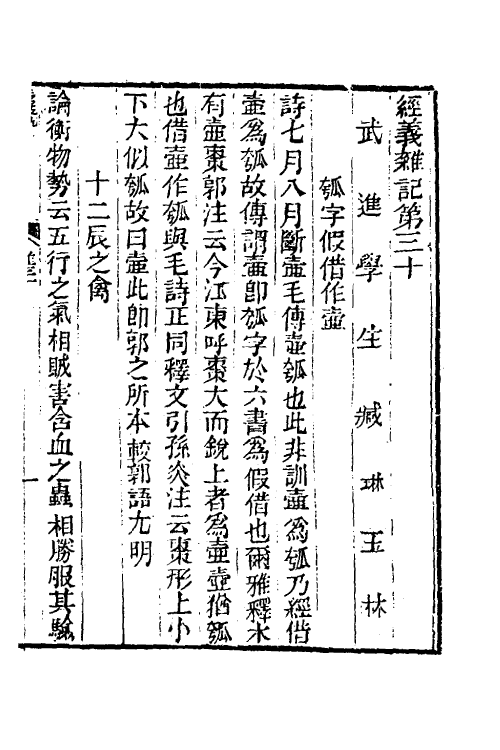 經義雜記第三十
武進學生臧琳玉林
瓠字假借作壺
詩七月八月斷壺毛傳壺瓠也此非訓壺爲瓠乃經借
壺爲瓠故傳謂壺卽瓠字於六書爲假借也爾雅釋木
有壺棗郭注云今江東呼棗大而銳上者爲壺壺猶瓠
也借壺作瓠與毛詩正同釋文引孫炎注云棗形上小
下大似瓠故曰壺此卽郭之所本較郭語尢明
十二辰之禽
論衡物勢云五行之氣相賊害含血之蟲相勝服其驗
一